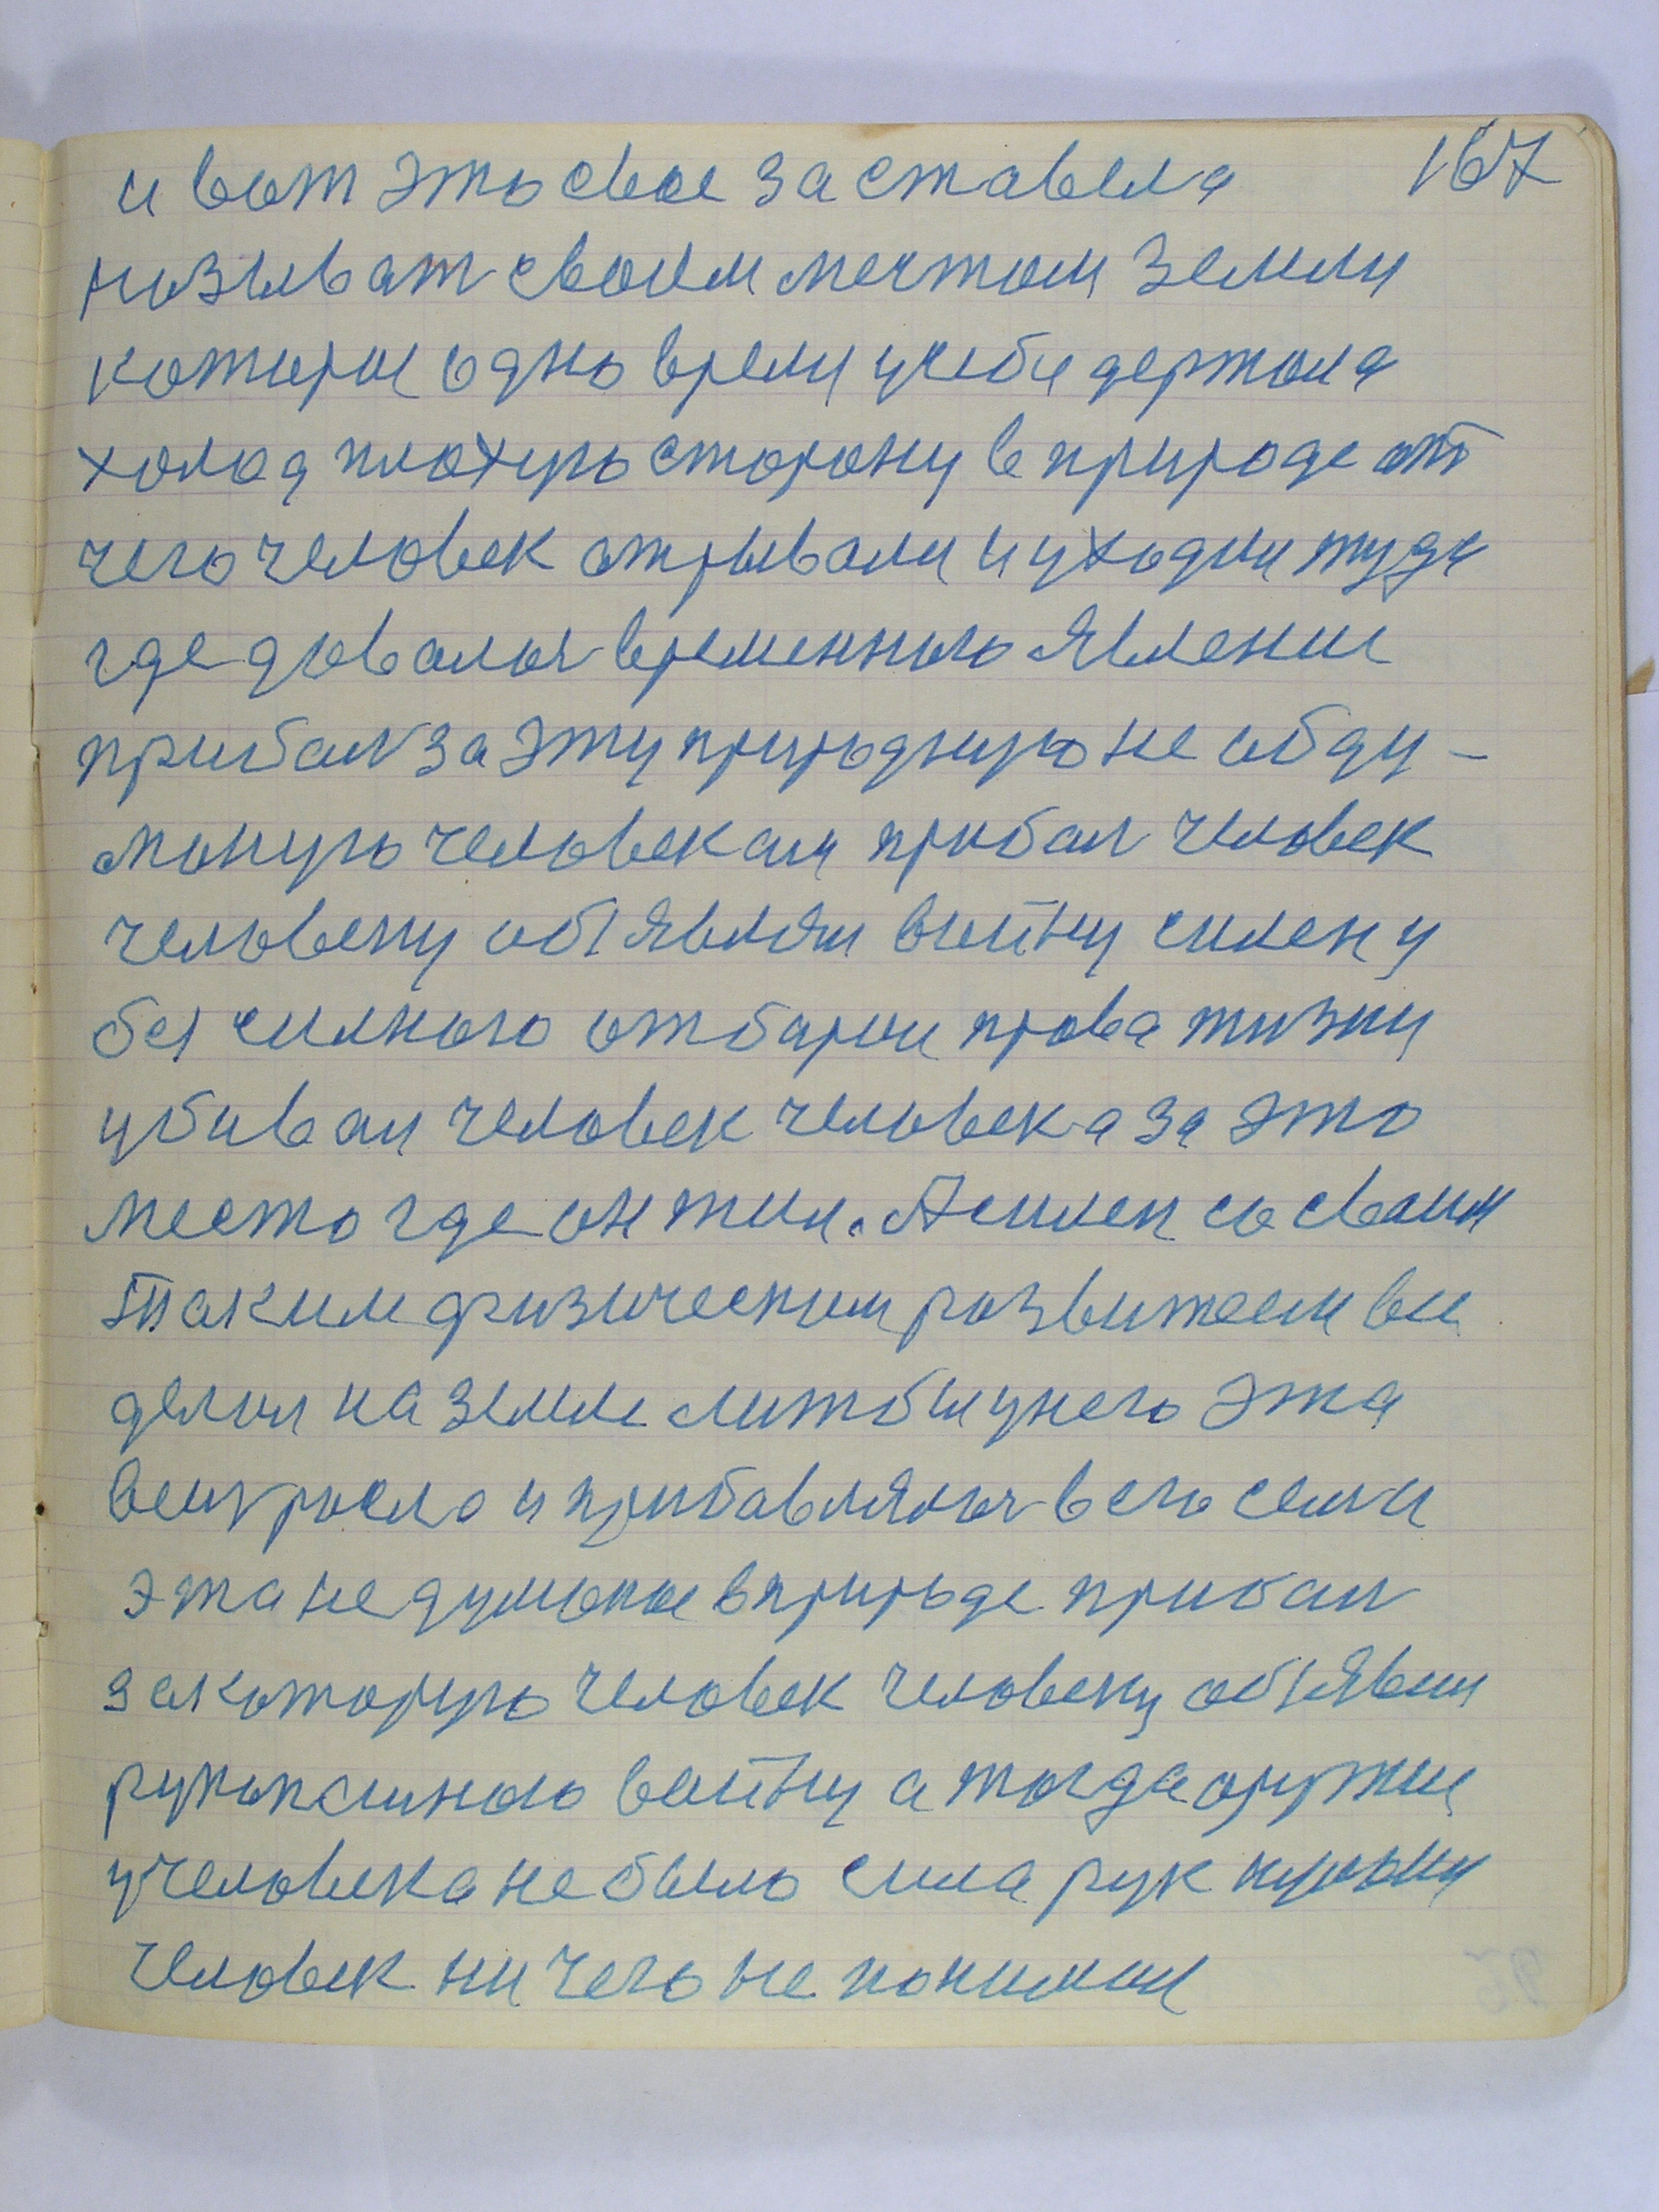 167
и вот это свое заставела
називат своим местом земли
которые одно время у себи держала
холод плохую сторону в природе от
чего человек открывали и уходил туда
где довалось временного явление
прибал за эту природную не обду-
моную человекам прибал человек
человеку обявлял войну силен у
без силного отбарил права жизни
убивал человек человека за это
место где он жил. А силен со своим
таким физическим развитеем ви
делил на земле литбы у него эта
вещ росла и прибавлялось в его семи
эта не думоное в природе прибал
за которую человек человеку обявил
рукопашною войну а тогда оружие
у человека не было сила рук
человек ни чего не понимал